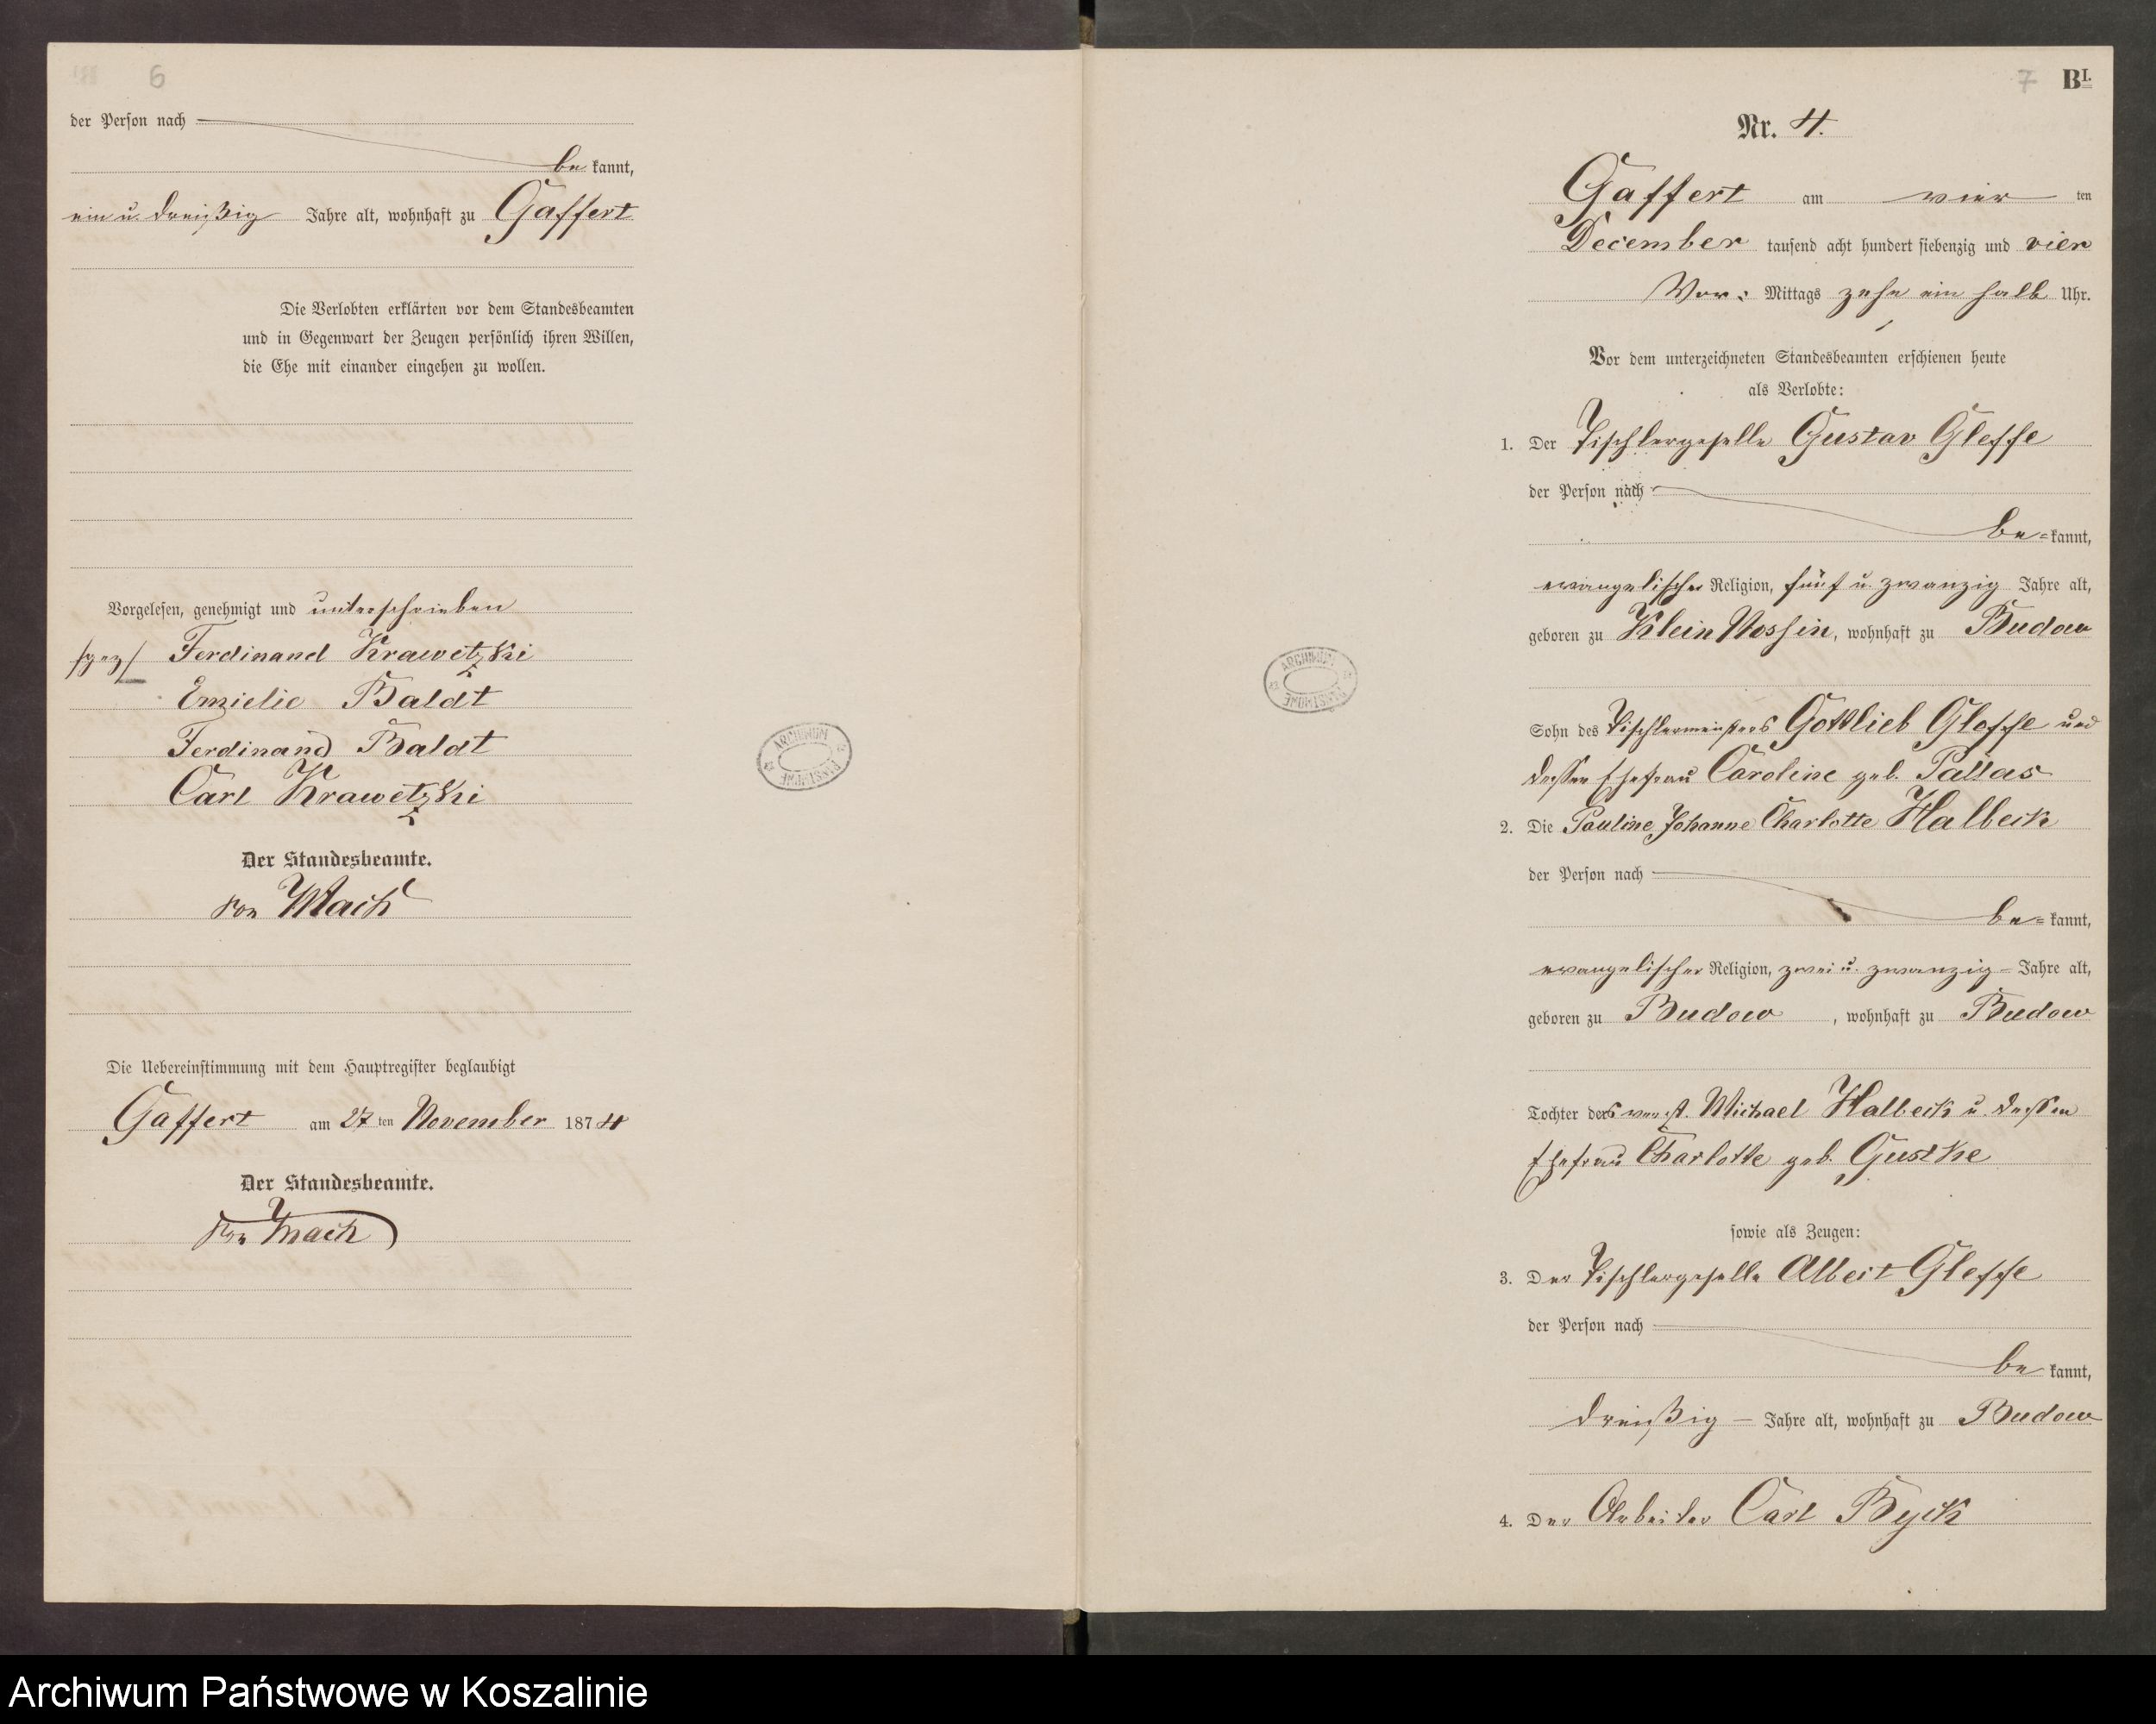 6
der Person nach
be kannt,
ein u. dreißig Jahre alt, wohnhaft zu Gaffert
Die Verlobten erklärten vor dem Standesbeamten
und in Gegenwart der Zeugen persönlich ihren Willen,
die Ehe mit einander eingehen zu wollen.
Vorgelesen, genehmigt und unterschrieben
/gez/ Ferdinand Krawetzki
Emielie Baldt
Ferdinand Baldt
Carl Krawetzki
Der Standesbeamte.
von Mach
Die Uebereinstimmung mit dem Hauptregister beglaubigt
Gaffert am 27 ten November 1874
Der Standesbeamte.
von Mach
ARCHIWUM PAŃSTWOWE
7 BI.
Nr. 4.
Gaffert am vier ten
December tausend acht hundert siebenzig und vier
Vor: Mittags zehn ein halb Uhr.
Vor dem unterzeichneten Standesbeamten erschienen heute
als Verlobte:
1. Der Tischlergeselle Gustav Gleffe
der Person nach
be=kannt,
evangelischer Religion, fünf u. zwanzig Jahre alt,
geboren zu Klein Nossin, wohnhaft zu Budow
Sohn des Tischlermeisters Gottlieb Gleffe und
dessen Ehefrau Caroline geb. Pallas
2. Die Pauline Johanne Charlotte Halbeck
der Person nach
be=kannt,
evangelischer Religion, zwei u. zwanzig Jahre alt,
geboren zu Budow, wohnhaft zu Budow
Tochter des verst. Michael Halbeck u. dessen
Ehefrau Charlotte geb. Gustke
sowie als Zeugen:
3. Der Tischlergeselle Albert Gleffe
der Person nach
be kannt,
dreißig Jahre alt, wohnhaft zu Budow
4. Der Arbeiter Carl Byck
ARCHIWUM PAŃSTWOWE
Archiwum Państwowe w Koszalinie